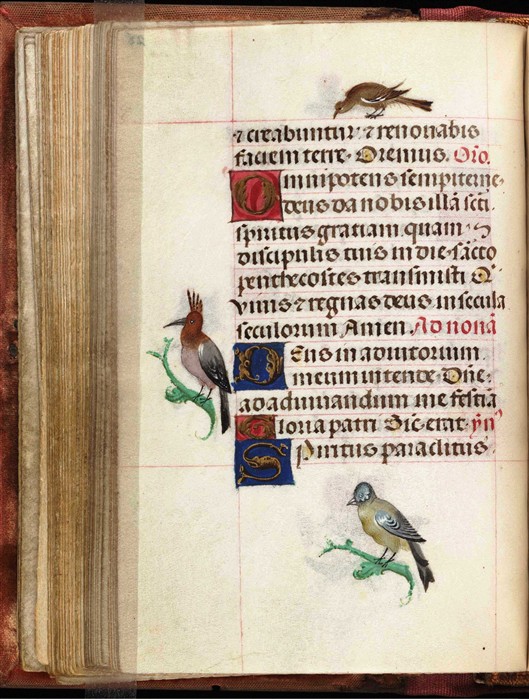 ⁊ creabuntur ⁊ renouabis
faciem terre. Oremus. Oro.
Omnipotens sempiterne
deus da nobis illā scti
spiritus gratiam quam
discipulis tuis in die sācto
penthecostes transmisti Q
viuis ⁊ regnas deus in secula
seculorum Amen. Ad nonā
Deus in adiutorium
meum intende. Dne.
ad adiuuandum me festīa
Gloria patri. Sic erat. yn9
Spiritus paraclitus